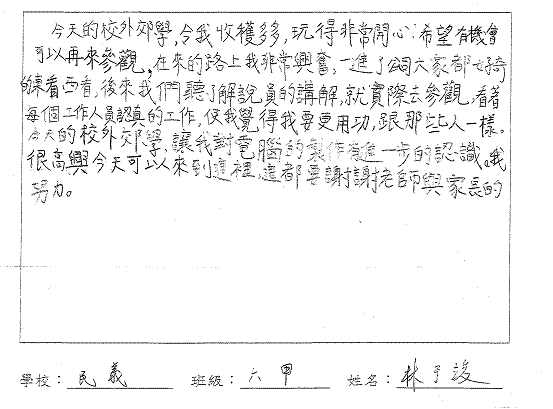 今天的校外郊學，令我收穫多多，玩得非常開心！希望有機會
可以再來參觀，在來的路上我非常興奮，一進了公司大家都好奇
的東看西看，後來我們聽了解說員的講解，就實際去參觀，看著
每個工作人員認真的工作，使我覺得我要更用功，跟那些人一樣。
今天的校外郊學，讓我對電腦的製作有進一步的認識。我
很高興今天可以來到這裡，這都要謝謝老師與家長的
努力。
學校：民義 班級：六甲 姓名：林于竣